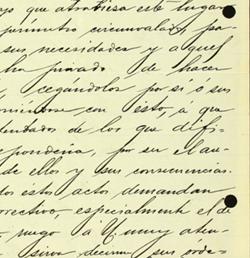 yo que atrabiesa este lugar
perímetro circunvalado, pa
sus necesidades y aquel
ha privado de hacer
, cegándolos por si o sus
niéndose con esto, á que
endados de los que difi
pondería, por su el au
de ellos y sus consecuencias.
los éstos actos demandan
orrectivo, especialmente el de
ruego á U. muy aten
sirva decirme sus órde